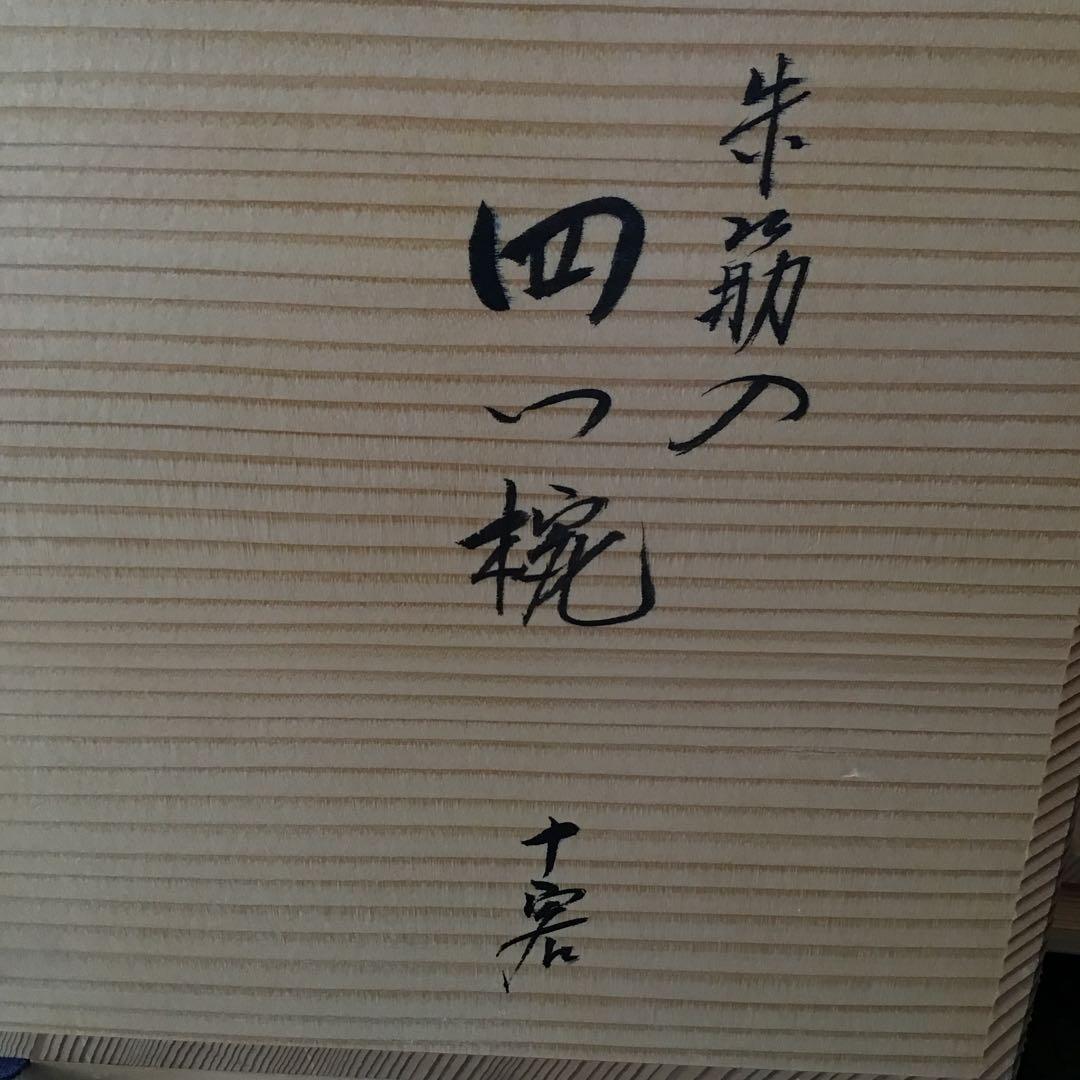 朱筋の
四つ椀
十客